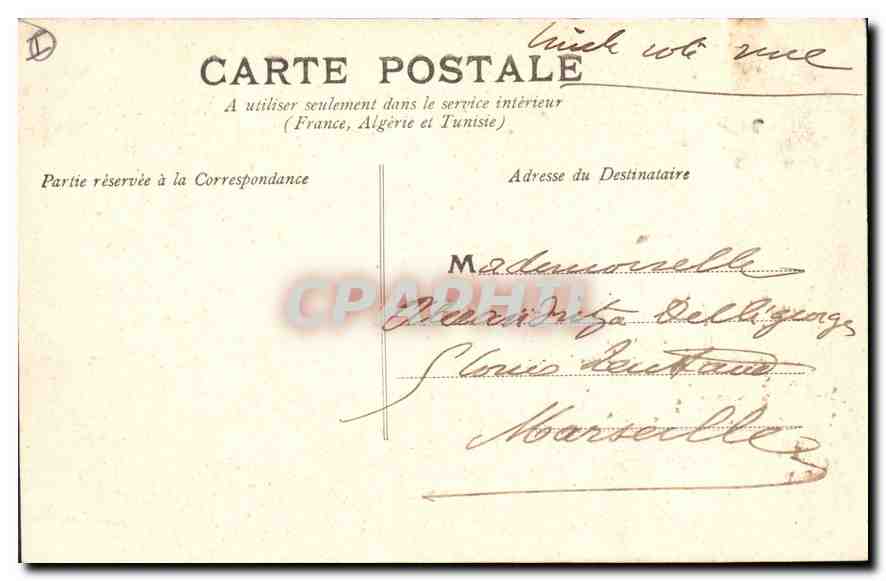 L
timbre coté vue
CARTE POSTALE
A utiliser seulement dans le service intérieur
(France, Algérie et Tunisie)
Partie réservée à la Correspondance
Adresse du Destinataire
Mademoiselle
CPARHII
Delligeorges
5
Marseille